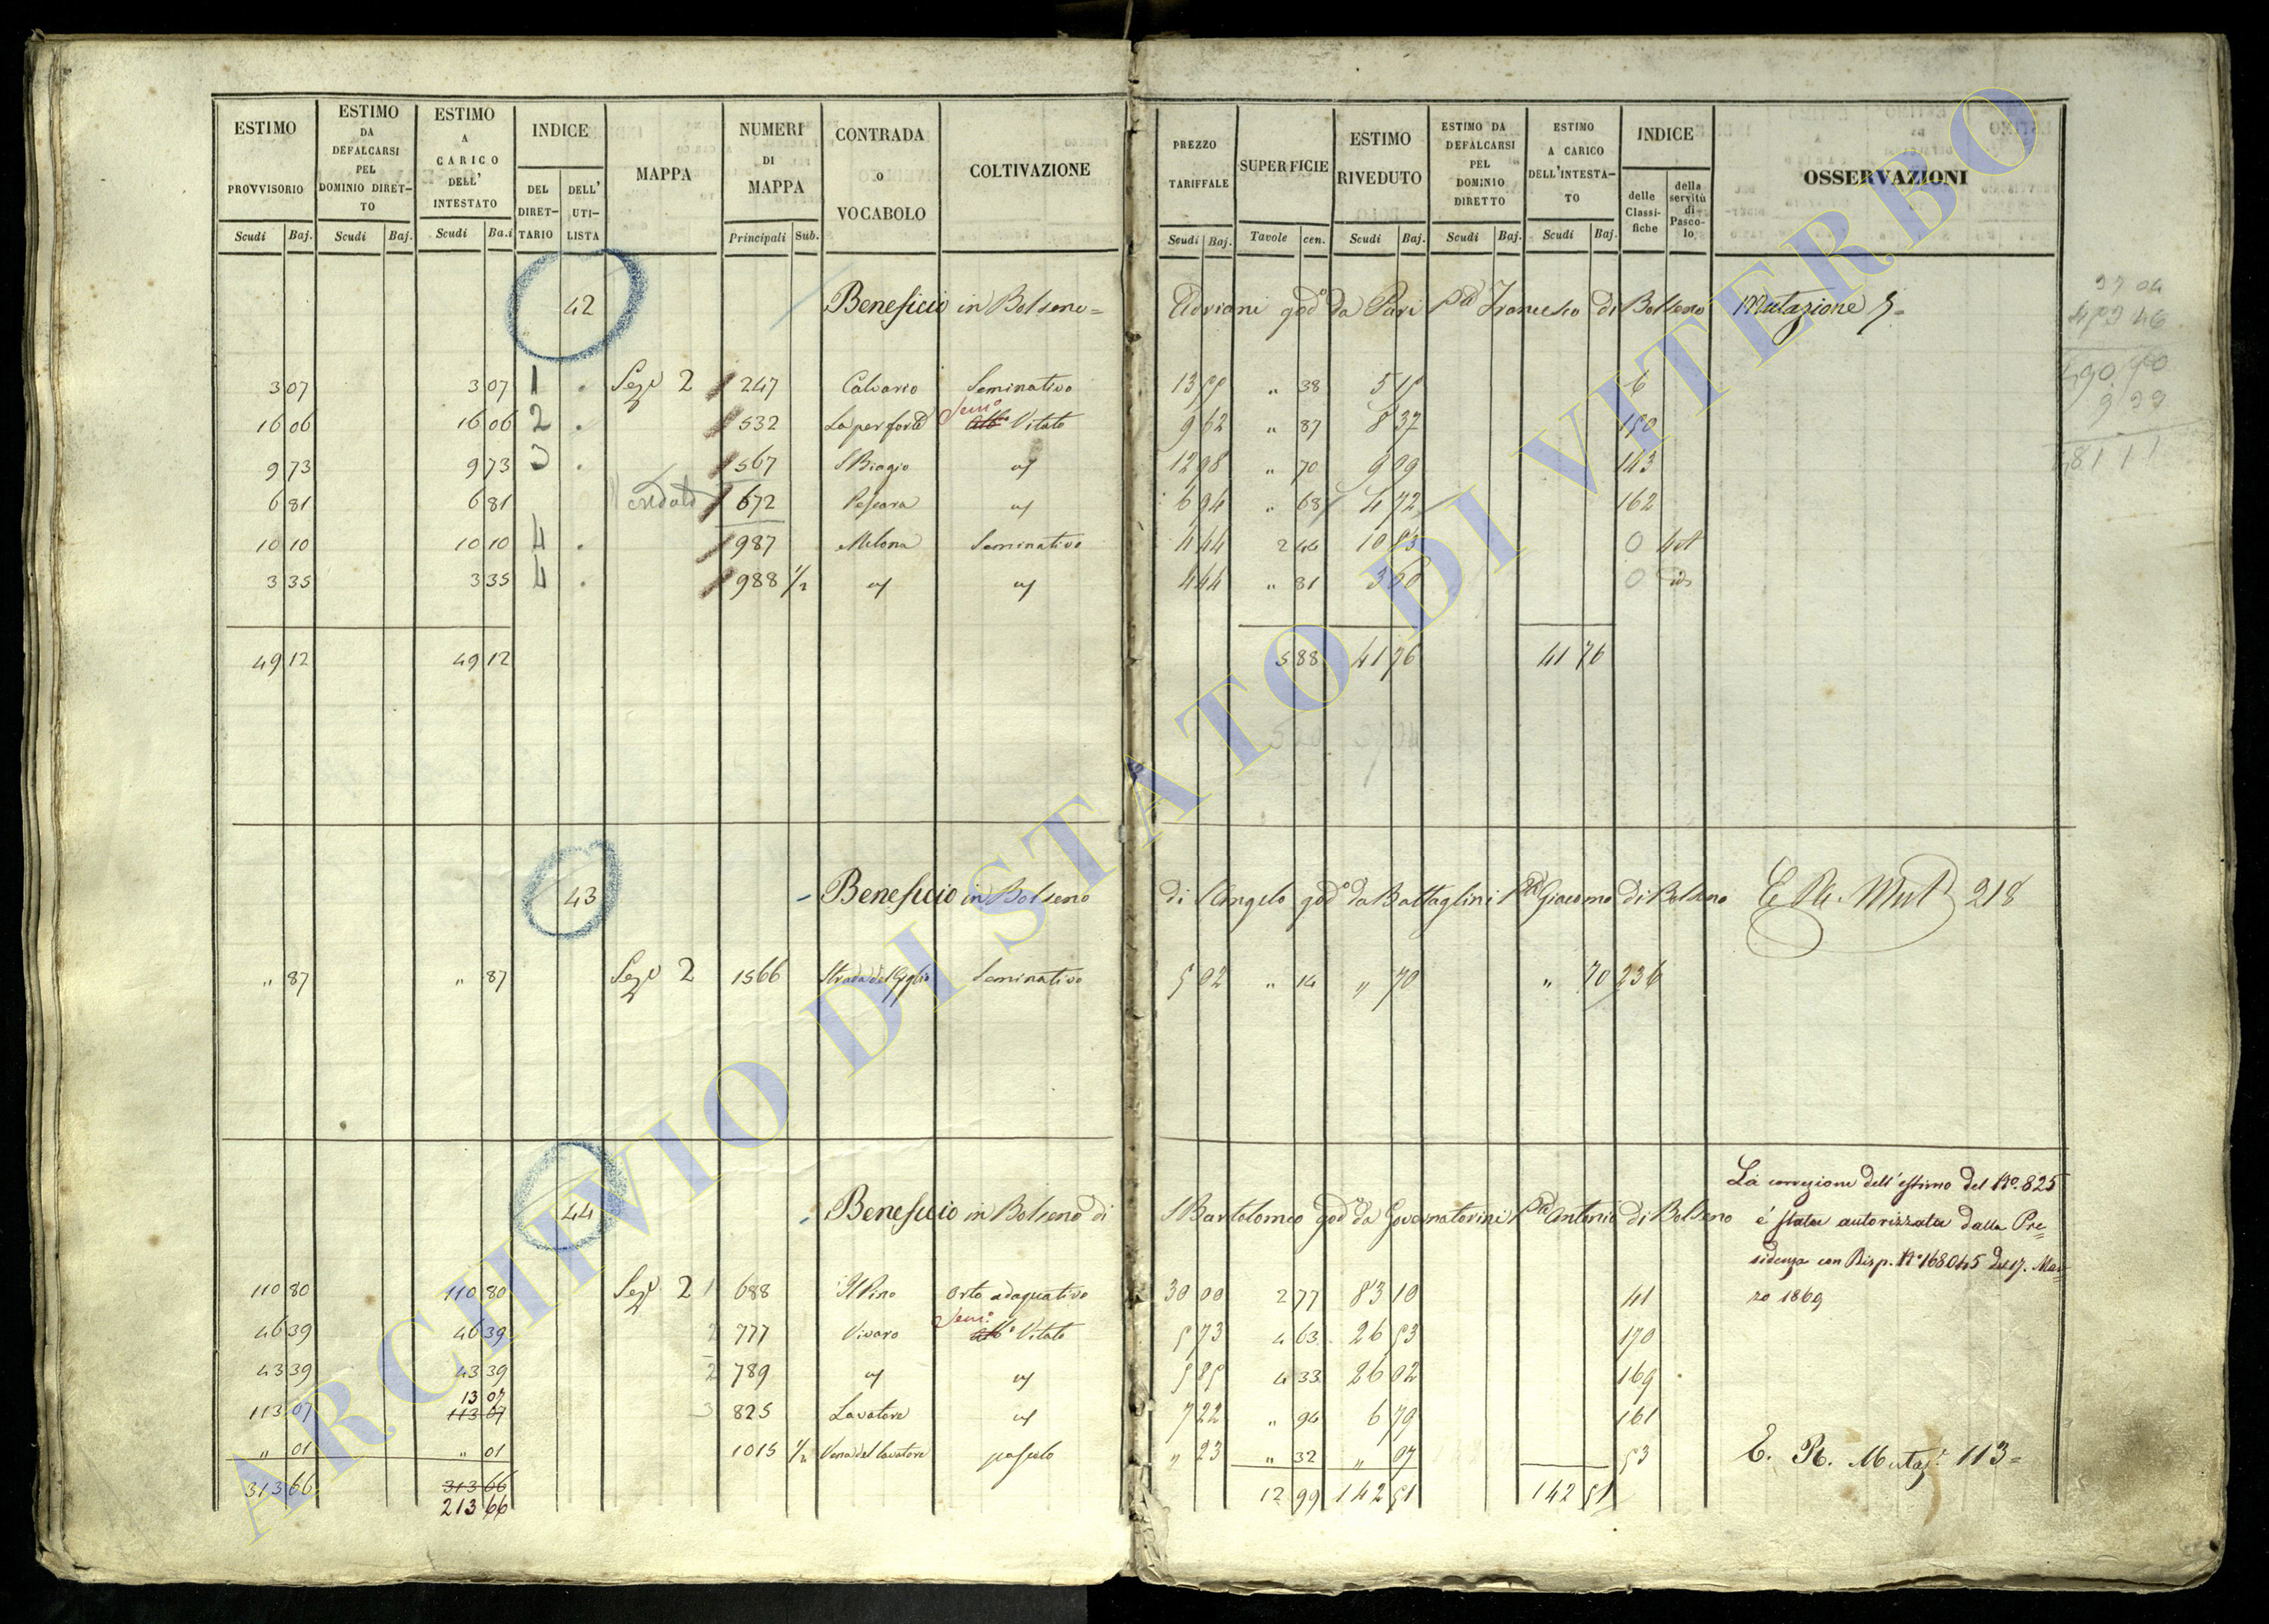 ESTIMO PROVVISORIO | ESTIMO DA DEFALCARSI PEL DOMINIO DIRETTO | ESTIMO A CARICO DELL' INTESTATO | INDICE | MAPPA | NUMERI DI MAPPA | CONTRADA O VOCABOLO | COLTIVAZIONE | PREZZO TARIFFALE | SUPERFICIE | ESTIMO RIVEDUTO | ESTIMO DA DEFALCARSI PEL DOMINIO DIRETTO | ESTIMO A CARICO DELL'INTESTATO | INDICE | OSSERVAZIONI
DEL DIRETTARIO | DELL' UTILISTA | delle Classifiche | della servitù di Pascolo
Scudi | Baj. | Scudi | Baj. | Scudi | Ba.i | Principali | Sub. | Scudi | Baj. | Tavole | cen. | Scudi | Baj. | Scudi | Baj. | Scudi | Baj.
42 Beneficio in Bolseno = Adriani god° da Pari Francesco di Bolseno Mutazione 5=
3 07 | 3 07 | 1 | Sezе 2 | 247 | Calvario | Seminativo | 13 55 | " 38 | 5 15 | 6
16 06 | 16 06 | 2 | 532 | Laperforte | Semo Vitato | 9 62 | " 87 | 8 37 | 150
9 73 | 9 73 | 3 | 567 | S Biagio | 12 98 | " 70 | 9 09 | 143
6 81 | 6 81 | 672 | Pescara | 6 94 | " 68 | 4 72 | 162
10 10 | 10 10 | 4 | 987 | Melona | Seminativo | 4 44 | 2 44 | 10 83 | 0
3 35 | 3 35 | 4 | 988 1/2 | 4 44 | " 81 | 3 60 | 0
49 12 | 49 12 | 5 88 | 41 76 | 41 76
43 Beneficio in Bolseno di S Angelo god° da Battaglini Giacomo di Bolseno E. R. Mut 218
" 87 | " 87 | Seze 2 | 1566 | Strada del Giglio | Seminativo | 5 02 | " 14 | " 70 | " 70 | 236
44 Beneficio in Bolseno di S Bartolomeo god° da Governatorini Antonio di Bolseno
La correzione dell' estimo del N°. 825
è stata autorizzata dalla Pre=
sidenza con Disp. N° 168045 del 17. Mar=
zo 1869
110 80 | 110 80 | Seze 2 | 1 | 688 | Il Pino | Orto adaquativo | 30 00 | 2 77 | 83 10 | 41
46 39 | 46 39 | 2 | 777 | Vivaro | Semo Vitato | 5 73 | 4 63 | 26 53 | 170
43 39 | 43 39 | 2 | 789 | 5 85 | 4 33 | 26 02 | 169
113 07 | 13 07 | 113 07 | 3 | 825 | Lavatore | 7 22 | " 94 | 6 79 | 161
" 01 | " 01 | 1015 1/2 | Vena del Lavatore | pascolo | " 23 | " 32 | " 07 | 53 | E. R. Mutaz. 113=
313 66 | 313 66 | 12 99 | 142 51 | 142 51
213 66
ARCHIVIO DI STATO DI VITERBO